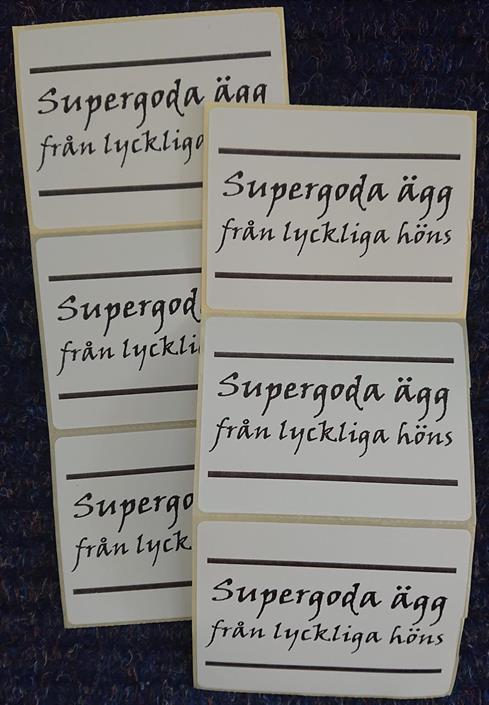 Supergoda ägg
från lyckliga
Supergod
från lyckli
Supergo
från lyck
Supergoda ägg
från lyckliga höns
Supergoda ägg
från lyckliga höns
Supergoda ägg
från lyckliga höns